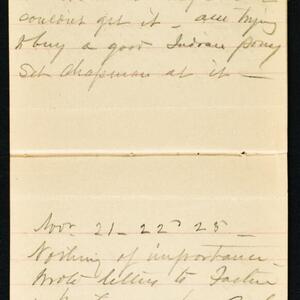 couldnt get it - am trying
to buy a good Indian pony
Set Chapman at it -
Novr 21 - 22d 23 -
Nothing of importance.
Wrote letters to